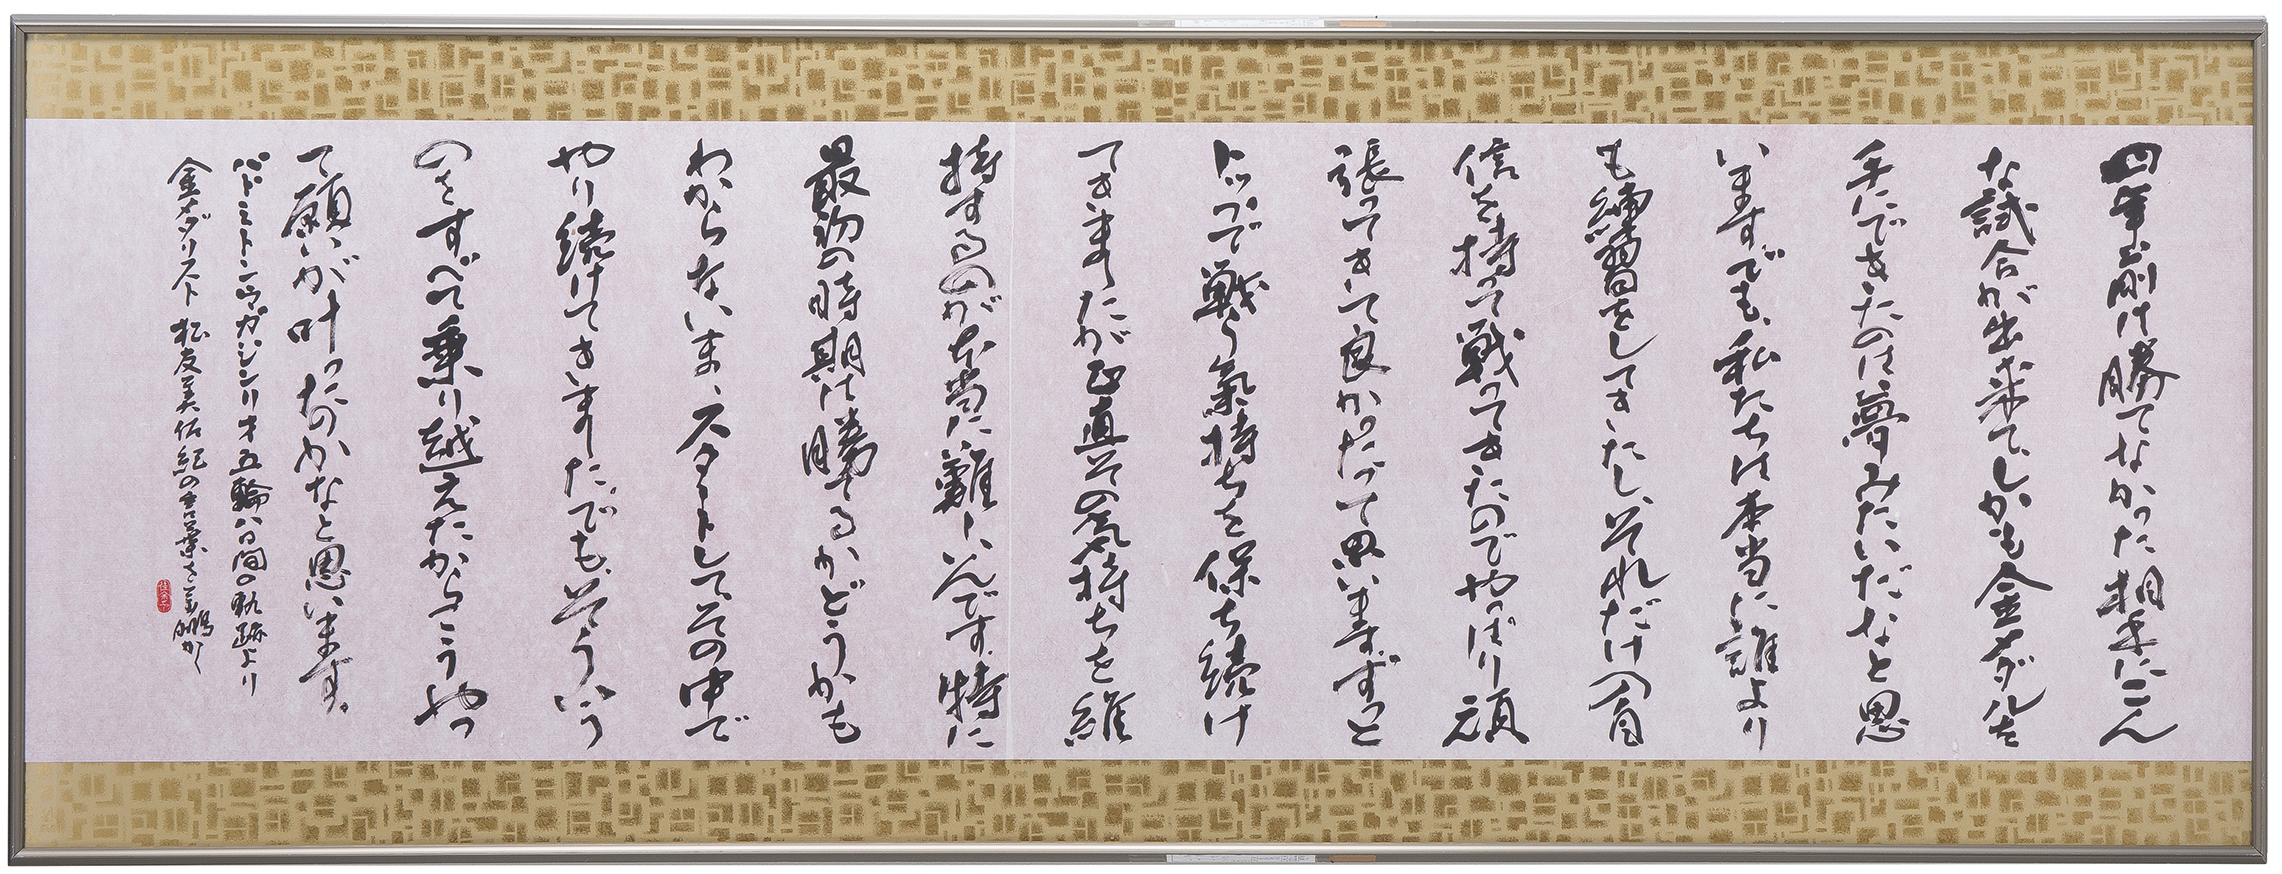 四年前は勝てなかった相手にこん
な試合が出来て、しかも金メダルを
手にできたのは夢みたいだなと思
いますでも、私たちは本当に誰より
も練習をしてきたし、それだけ自
信を持って戦ってきたのでやっぱり頑
張ってきて良かったって思いますずっと
トップで戦う氣持ちを保ち続け
てきましたが正直その気持ちを維
持するのが本当に難しいんです。特に
最初の時期は勝てるかどうかも
わからないまゝスタートしてその中で
やり続けてきましたでも、そういう
のをすべて乗り越えたからこうやっ
て願いが叶ったのかなと思います。
バドミントン リオ五輪八日間の軌跡より
金メダリスト 松友美佐紀の言葉を 鵬かく